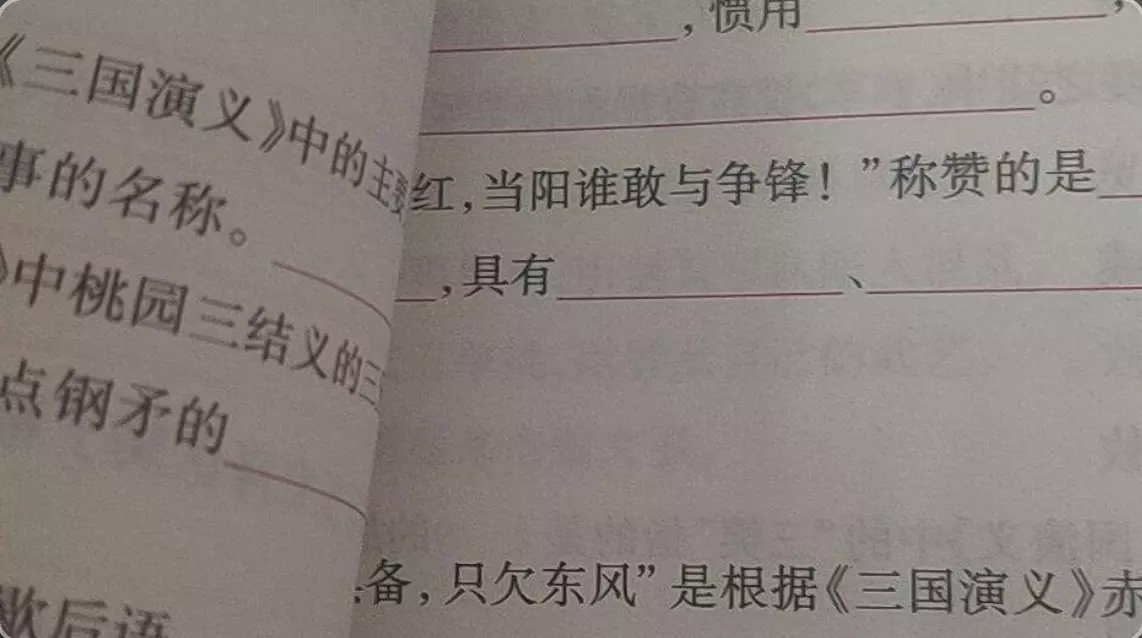 《三国演义》中的主要
事的名称。
》中桃园三结义的三
点钢矛的
歇后语
,惯用,
。
红,当阳谁敢与争锋!”称赞的是
,具有、
备,只欠东风”是根据《三国演义》赤